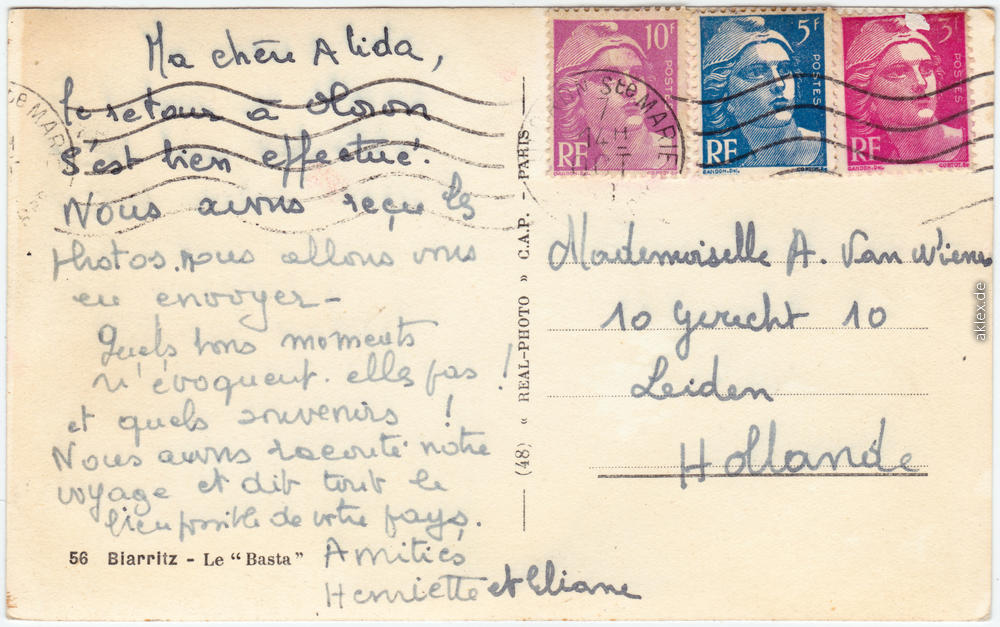 Ma chère Alida,
le retour à Oloron
s'est bien effectué.
Nous avons reçu les
photos, nous allons vous
en envoyer -
Quels bons moments
n'évoquent-elles pas !
et quels souvenirs !
Nous avons raconté notre
voyage et dit tout le
bien possible de votre pays.
Amitiés
Henriette et Eliane
56 Biarritz - Le "Basta"
(48) « REAL-PHOTO » C.A.P. - PARIS
10F
POSTES
RF
GANDON-DEL.
5F
POSTES
RF
GANDON-DEL.
3F
POSTES
RF
GANDON-DEL.
Ste MARIE
7
14 H
Ste MARIE
Mademoiselle A. Van Wienen
10 Gerecht 10
Leiden
Hollande
aklex.de